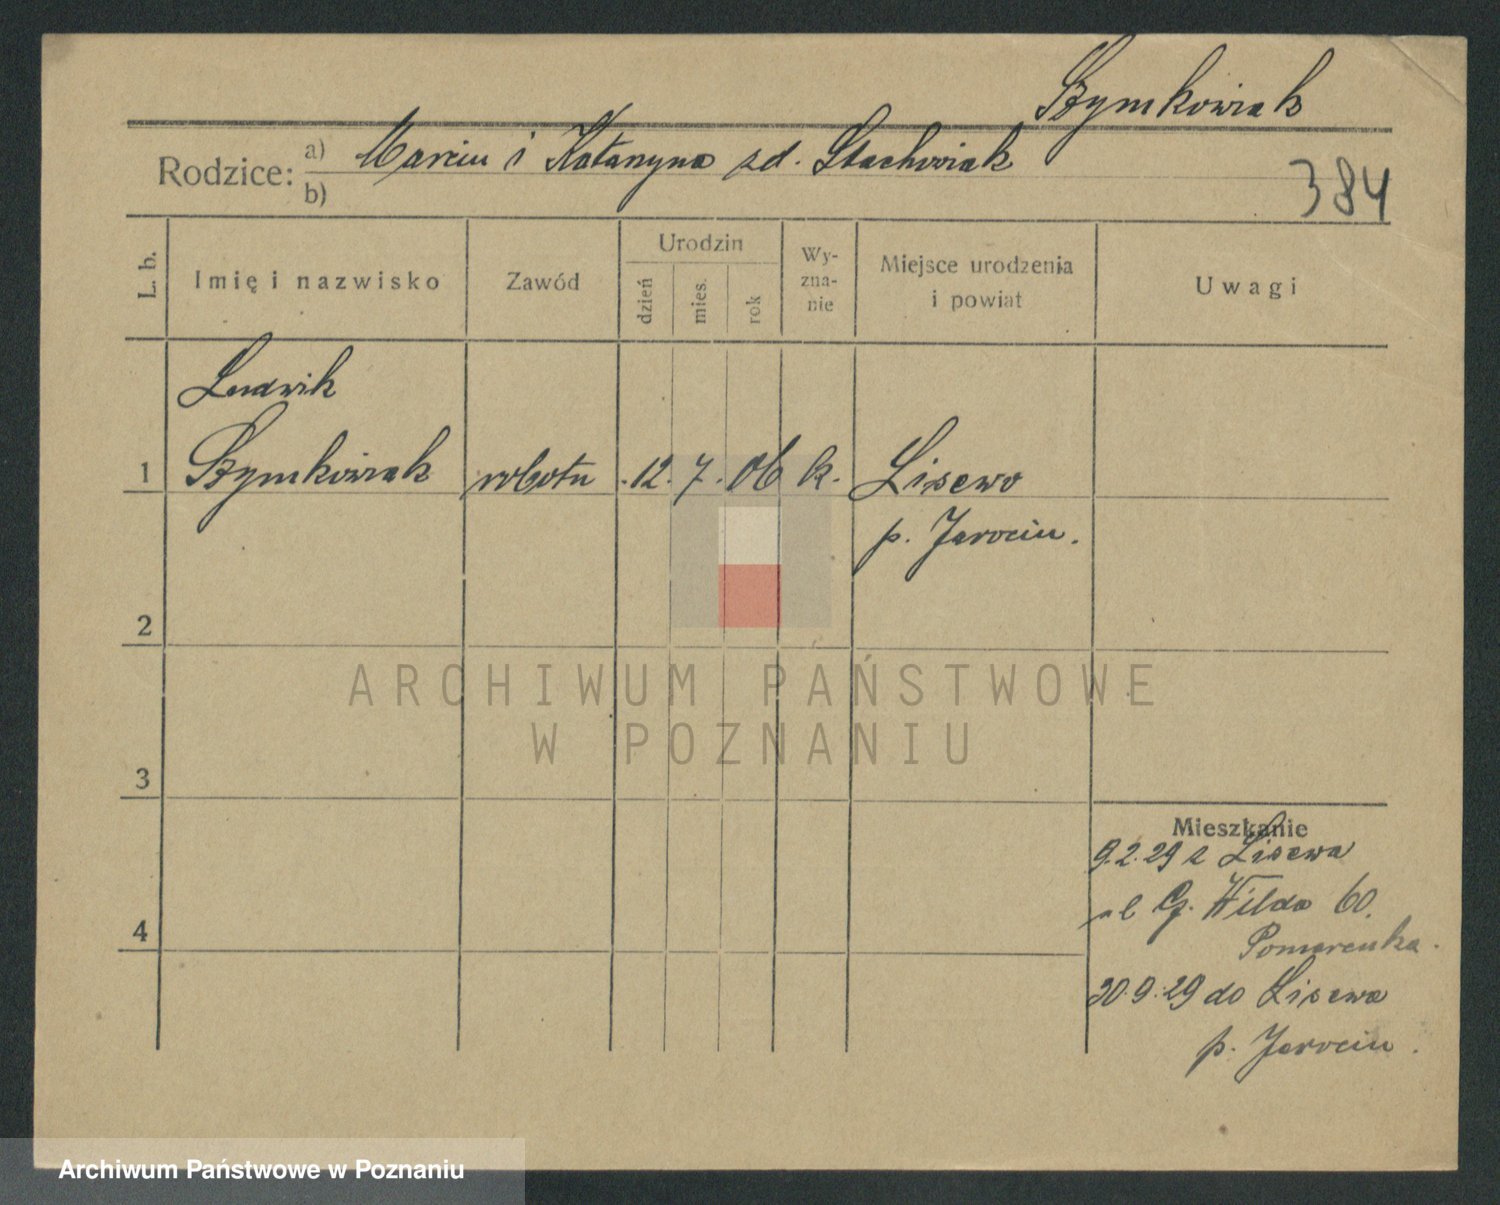 Szymkowiak
Rodzice: a) Marcin i Katarzyna zd. Stachowiak
b)
384
L. b.
Imię i nazwisko
Zawód
Urodzin
dzień
mies.
rok
Wy-
zna-
nie
Miejsce urodzenia
i powiat
Uwagi
Ludwik
1 Szymkowiak robotn. 12. 7. 06 k. Lisewo
p. Jarocin.
2
ARCHIWUM PAŃSTWOWE
W POZNANIU
3
Mieszkanie
9.2.29 z Lisewa
ul G. Wilda 60.
4
30.9.29 do Lisewa
p. Jarocin.
Archiwum Państwowe w Poznaniu